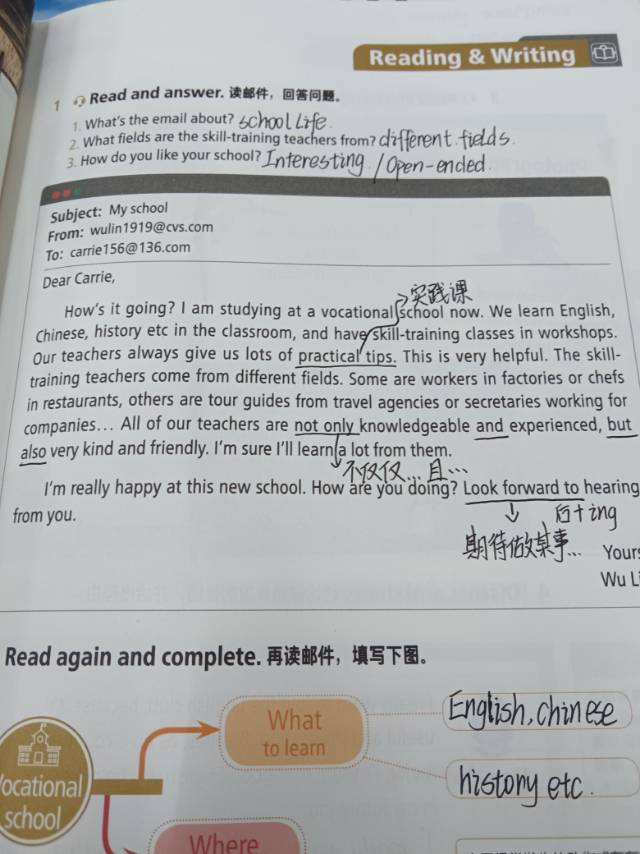 Reading & Writing
1 Read and answer. 读邮件，回答问题。
1. What's the email about? school Life.
2. What fields are the skill-training teachers from? different fields.
3. How do you like your school? Interesting / Open-ended.
Subject: My school
From: wulin1919@cvs.com
To: carrie156@136.com
Dear Carrie,
实践课
How's it going? I am studying at a vocational school now. We learn English,
Chinese, history etc in the classroom, and have skill-training classes in workshops.
Our teachers always give us lots of practical tips. This is very helpful. The skill-
training teachers come from different fields. Some are workers in factories or chefs
in restaurants, others are tour guides from travel agencies or secretaries working for
companies... All of our teachers are not only knowledgeable and experienced, but
also very kind and friendly. I'm sure I'll learn a lot from them.
不仅仅...且...
I'm really happy at this new school. How are you doing? Look forward to hearing
from you.
后+ing
期待做某事...
Yours
Wu Li
Read again and complete. 再读邮件，填写下图。
What
to learn
English, chinese
history etc.
Vocational
school
Where